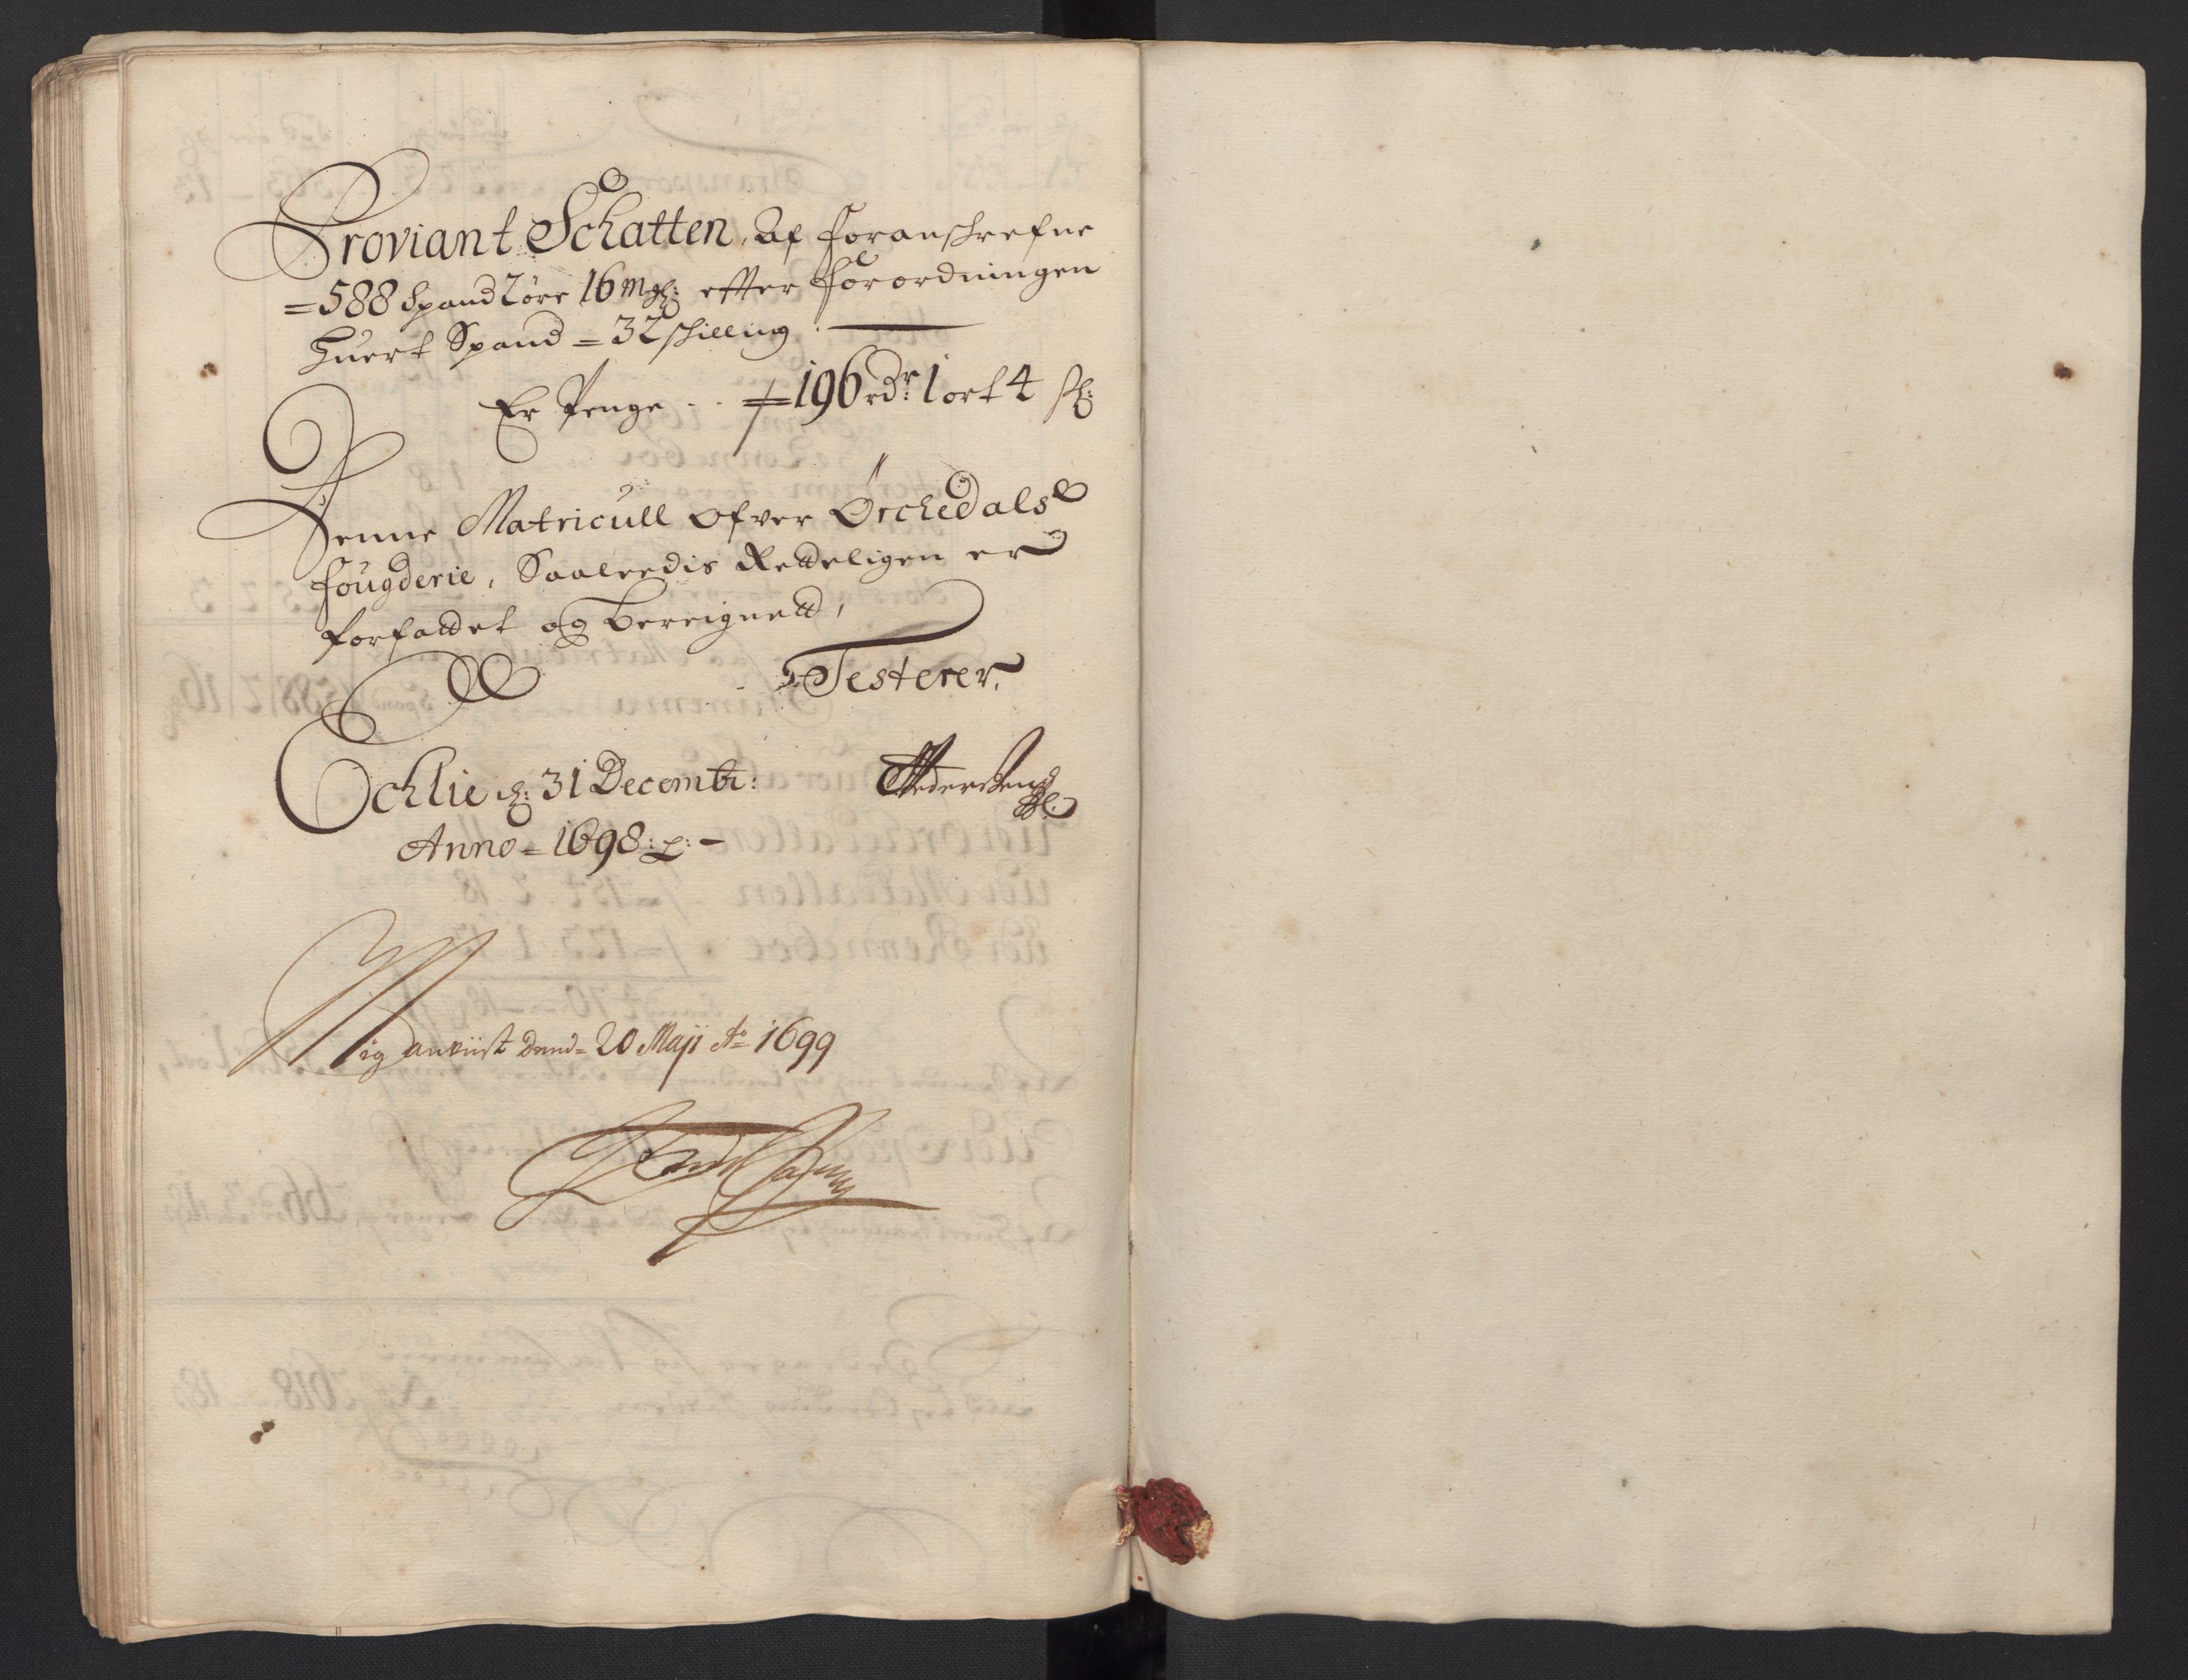 Proviant Schatten, Af foranschrefne
=588 Spand 2 øre 16 mℓ: effter Forordningen
Huert Spand = 32 schilling.
Er Penge - - =196 rdr: 1 ort 4 sℓ:
Denne Matricull Ofver Ørchedals
Fougderie, Saaleedis Retteligen er
forfattet og bereignett,
Testerer,
Ochlie d: 31 Decembr:
Anno = 1698:
Mig anviist dend= 20 Maji Ao 1699